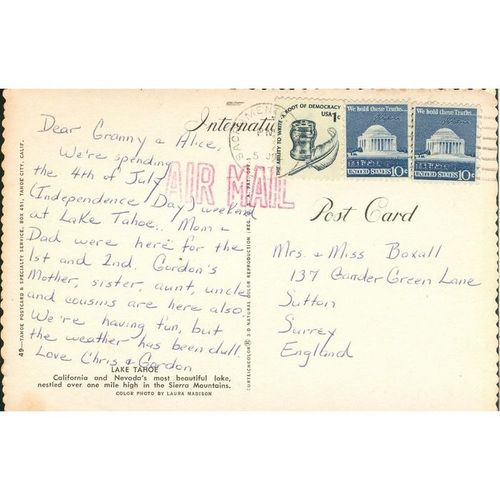 Dear Granny & Alice,
We're spending
the 4th of July
(Independence Day) weekend
at Lake Tahoe. Mom &
Dad were here for the
1st and 2nd. Gordon's
Mother, sister, aunt, uncle
and cousins are here also.
We're having fun, but
the weather has been dull.
Love Chris & Gordon
LAKE TAHOE
California and Nevada's most beautiful lake,
nestled over one mile high in the Sierra Mountains.
COLOR PHOTO BY LAURA MADISON
49—TAHOE POSTCARD & SPECIALTY SERVICE, BOX 451, TAHOE CITY, CALIF.
AIR MAIL
CURTEICHCOLOR® 3-D NATURAL COLOR REPRODUCTION
THE ABILITY TO WRITE—A ROOT OF DEMOCRACY
USA 1c
We hold these Truths...
UNITED STATES 10c
We hold these Truths...
UNITED STATES 10c
Post Card
Mrs. & Miss Boxall
137 Gander Green Lane
Sutton
Surrey
England